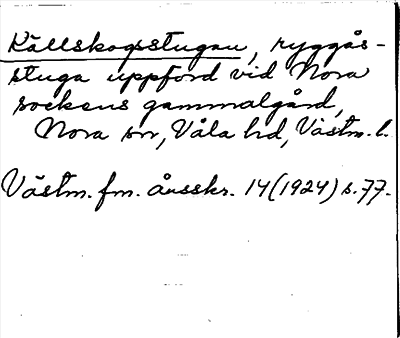 Källskogsstugan, ryggås-
stuga uppförd vid Nora
sockens gammalgård,
Nora sn, Våla hd, Västm. l.
Västm. fm. årsskr. 14 (1924) s. 77.